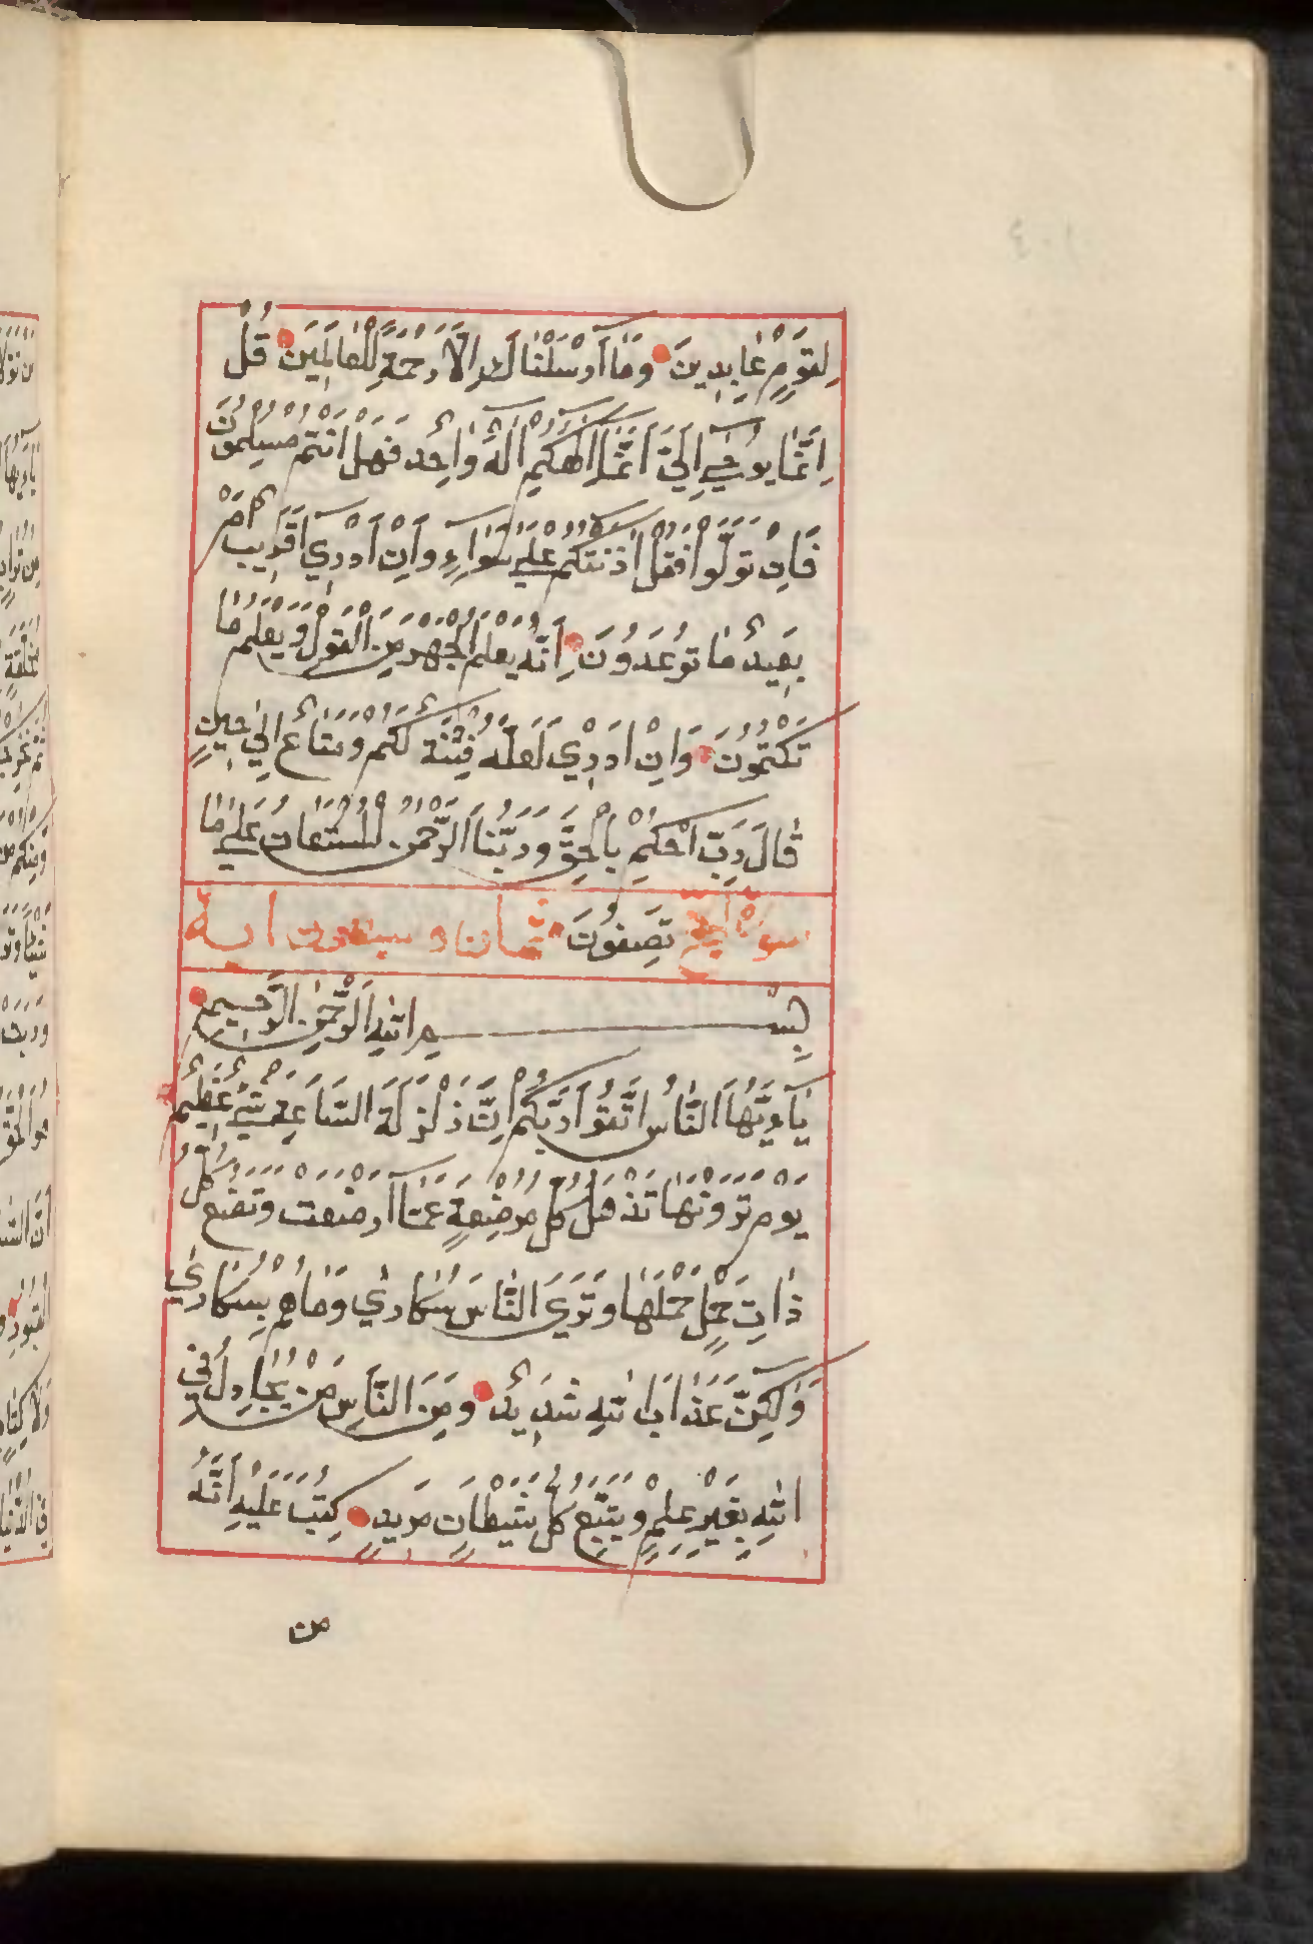 لِقَوْمٍ عَابِدِينَ وَمَا أَرْسَلْنَاكَ إِلَّا رَحْمَةً لِلْعَالَمِينَ قُلْ
إِنَّمَا يُوحَى إِلَيَّ أَنَّمَا إِلَهُكُمْ إِلَهٌ وَاحِدٌ فَهَلْ أَنْتُمْ مُسْلِمُونَ
فَإِنْ تَوَلَّوْا فَقُلْ آذَنْتُكُمْ عَلَى سَوَاءٍ وَإِنْ أَدْرِي أَقَرِيبٌ أَمْ
بَعِيدٌ مَا تُوعَدُونَ إِنَّهُ يَعْلَمُ الْجَهْرَ مِنَ الْقَوْلِ وَيَعْلَمُ مَا
تَكْتُمُونَ وَإِنْ أَدْرِي لَعَلَّهُ فِتْنَةٌ لَكُمْ وَمَتَاعٌ إِلَى حِينٍ
قَالَ رَبِّ احْكُمْ بِالْحَقِّ وَرَبُّنَا الرَّحْمَنُ الْمُسْتَعَانُ عَلَى مَا
سورة الحج تَصِفُونَ ثمان وسبعون اية
بِسْمِ اللَّهِ الرَّحْمَنِ الرَّحِيمِ
يَا أَيُّهَا النَّاسُ اتَّقُوا رَبَّكُمْ إِنَّ زَلْزَلَةَ السَّاعَةِ شَيْءٌ عَظِيمٌ
يَوْمَ تَرَوْنَهَا تَذْهَلُ كُلُّ مُرْضِعَةٍ عَمَّا أَرْضَعَتْ وَتَضَعُ كُلُّ
ذَاتِ حَمْلٍ حَمْلَهَا وَتَرَى النَّاسَ سُكَارَى وَمَا هُمْ بِسُكَارَى
وَلَكِنَّ عَذَابَ اللَّهِ شَدِيدٌ وَمِنَ النَّاسِ مَنْ يُجَادِلُ فِي
اللَّهِ بِغَيْرِ عِلْمٍ وَيَتَّبِعُ كُلَّ شَيْطَانٍ مَرِيدٍ كُتِبَ عَلَيْهِ أَنَّهُ
من